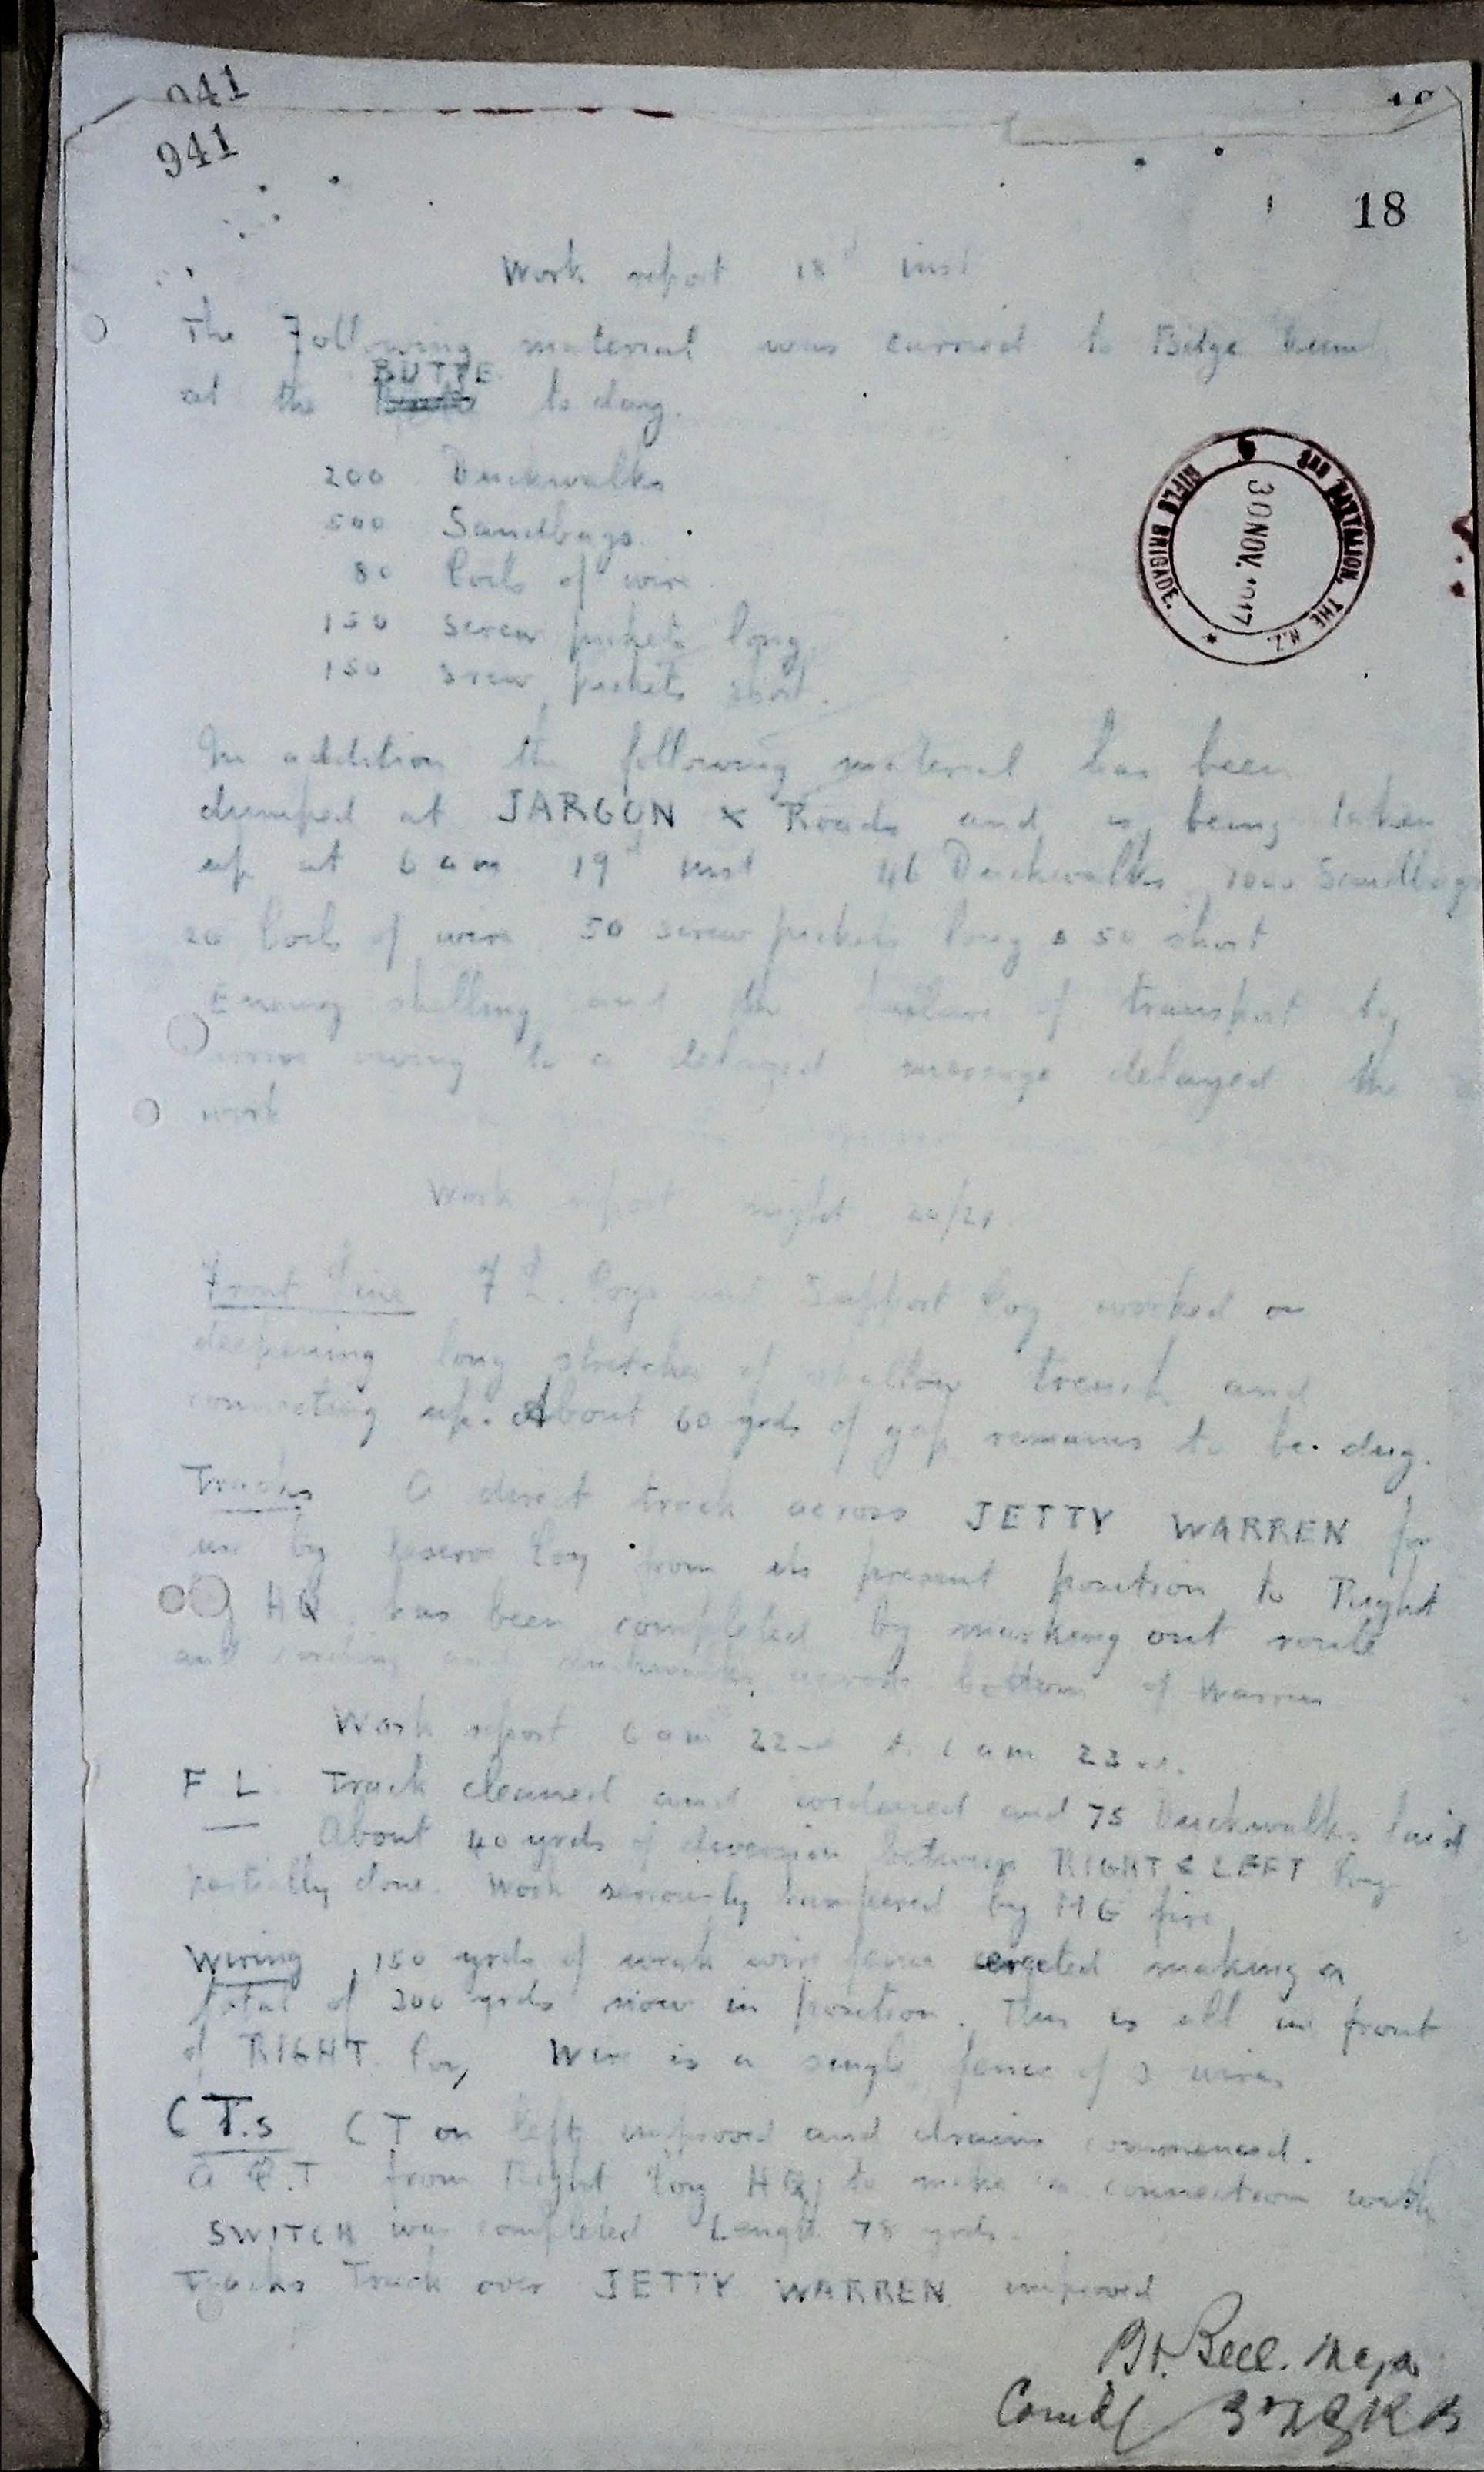 941
941
18
Work report 18th inst
The Following material was carried to Bdge Dump
at the BUTTE to day.
200 Duckwalks
500 Sandbags.
80 Coils of wire
150 screw pickets long
150 srew pickets short.
3RD BATTALION, THE N.Z. RIFLE BRIGADE.
30 NOV. 1917
In addition the following material has been
dumped at JARGON X Roads and is being taken
up at 6 am 19th inst 46 Duckwalks 1000 Sandbags
20 Coils of wire 50 screw pickets long & 50 short
Enemy shelling and the failure of transport to
arrive owing to a delayed message delayed the
work
Work report night 20/21.
Front Line F L. Coys and Support Coy worked on
deepening long stretches of shallow trench and
connecting up. About 60 yrds of gap remains to be dug.
Tracks A direct track across JETTY WARREN for
use by Reserve Coy from its present position to Right
Coy HQ has been completed by marking out route
and duckwalks across bottom of Warren
Work report 6 am 22nd to 6 am 23rd.
F L. Track cleaned and widened and 75 Duckwalks laid
About 40 yrds of diversion between RIGHT & LEFT Coy
partially done. Work seriously hampered by MG fire
Wiring 150 yrds of weak wire fence erected making a
total of 300 yrds now in position. This is all in front
of RIGHT Coy Wire is a single fence of 3 wires
C T.s C T on left improved and drains commenced.
A C.T from Right Coy HQ to make a connection with
SWITCH was completed Length 78 yrds.
Tracks Track over JETTY WARREN improved
Major
Comdg 3rd NZRB